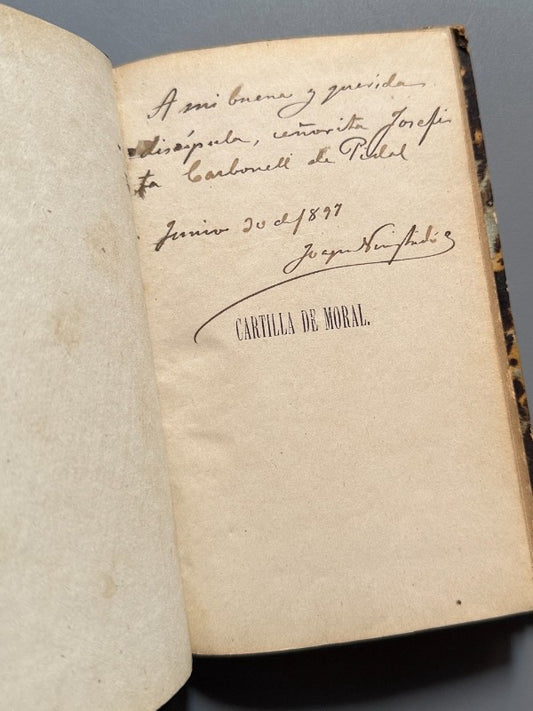 A mi buena y querida
discípula, señorita Josefi
ta Carbonell de Padal
Junio 30 de 1897
CARTILLA DE MORAL.